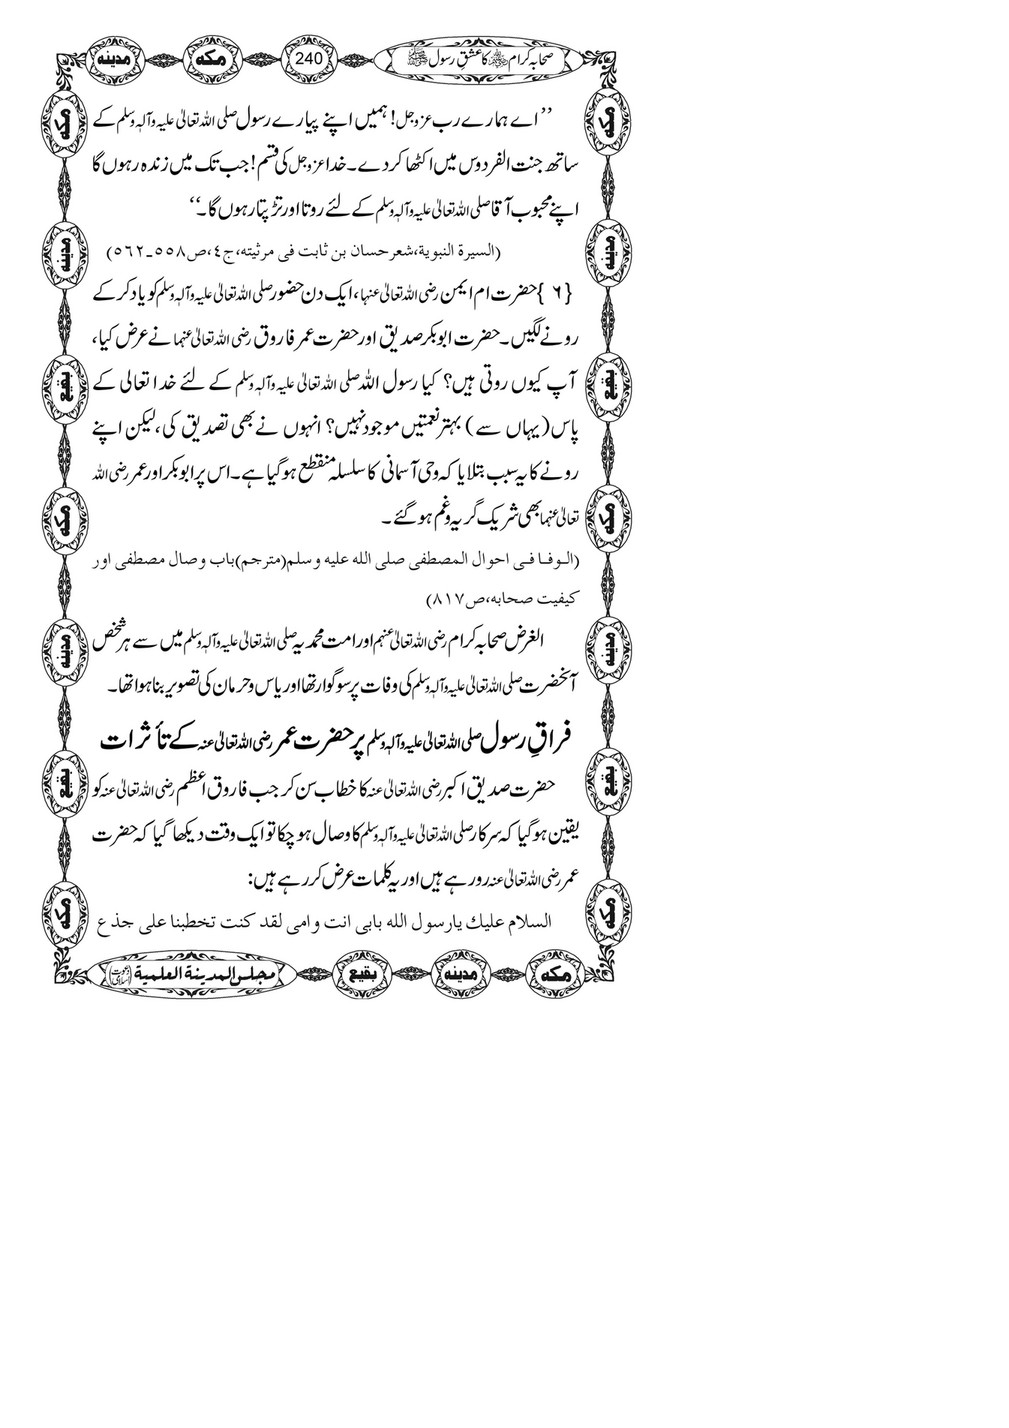 صحابہ کرام ﷺ کا عشق رسول ﷺ
240
مکہ
مدینہ
’’اے ہمارے رب عزوجل! ہمیں اپنے پیارے رسول صلی اللہ تعالیٰ علیہ وآلہٖ وسلم کے
ساتھ جنت الفردوس میں اکٹھا کردے۔ خدا عزوجل کی قسم! جب تک میں زندہ رہوں گا
اپنے محبوب آقا صلی اللہ تعالیٰ علیہ وآلہٖ وسلم کے لئے روتا اور تڑپتا رہوں گا۔‘‘
(السیرة النبویة،شعر حسان بن ثابت فی مرثیته،ج٤،ص٥٥٨۔٥٦٢)
{٦} حضرت ام ایمن رضی اللہ تعالیٰ عنہا، ایک دن حضور صلی اللہ تعالیٰ علیہ وآلہٖ وسلم کو یاد کرکے
رونے لگیں۔ حضرت ابوبکر صدیق اور حضرت عمر فاروق رضی اللہ تعالیٰ عنہما نے عرض کیا،
آپ کیوں روتی ہیں؟ کیا رسول اللہ صلی اللہ تعالیٰ علیہ وآلہٖ وسلم کے لئے خدا تعالی کے
پاس (یہاں سے) بہتر نعمتیں موجود نہیں؟ انہوں نے بھی تصدیق کی، لیکن اپنے
رونے کا یہ سبب بتلایا کہ وحی آسمانی کا سلسلہ منقطع ہوگیا ہے۔ اس پر ابوبکر اور عمر رضی اللہ
تعالیٰ عنہما بھی شریک گریہ وغم ہوگئے۔
(الـوفـا فـی احوال المصطفی صلی الله علیه وسلم(مترجم)باب وصال مصطفی اور
کیفیت صحابه،ص٨١٧)
الغرض صحابہ کرام رضی اللہ تعالیٰ عنہم اور امت محمدیہ صلی اللہ تعالیٰ علیہ وآلہٖ وسلم میں سے ہر شخص
آنحضرت صلی اللہ تعالیٰ علیہ وآلہٖ وسلم کی وفات پر سوگوار تھا اور یاس وحرمان کی تصویر بنا ہوا تھا۔
فراقِ رسول صلی اللہ تعالیٰ علیہ وآلہٖ وسلم پر حضرت عمر رضی اللہ تعالیٰ عنہ کے تأثرات
حضرت صدیق اکبر رضی اللہ تعالیٰ عنہ کا خطاب سن کر جب فاروق اعظم رضی اللہ تعالیٰ عنہ کو
یقین ہوگیا کہ سرکار صلی اللہ تعالیٰ علیہ وآلہٖ وسلم کا وصال ہوچکا تو ایک وقت دیکھا گیا کہ حضرت
عمر رضی اللہ تعالیٰ عنہ رو رہے ہیں اور یہ کلمات عرض کر رہے ہیں:
السلام علیك یارسول الله بابی انت وامی لقد کنت تخطبنا علی جذع
مکہ
مدینہ
بقیع
مکہ
مدینہ
بقیع
مکہ
مکہ
مدینہ
بقیع
مکہ
مدینہ
بقیع
مکہ
مکہ
مدینہ
بقیع
مجلس المدینة العلمیة (دعوت اسلامی)